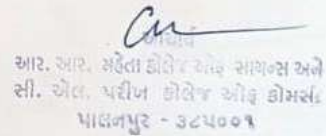 આચાર્ય
આર. આર. મહેતા કોલેજ ઓફ સાયન્સ અને
સી. એલ. પરીખ કોલેજ ઓફ કોમર્સ
પાલનપુર - ૩૮૫૦૦૧